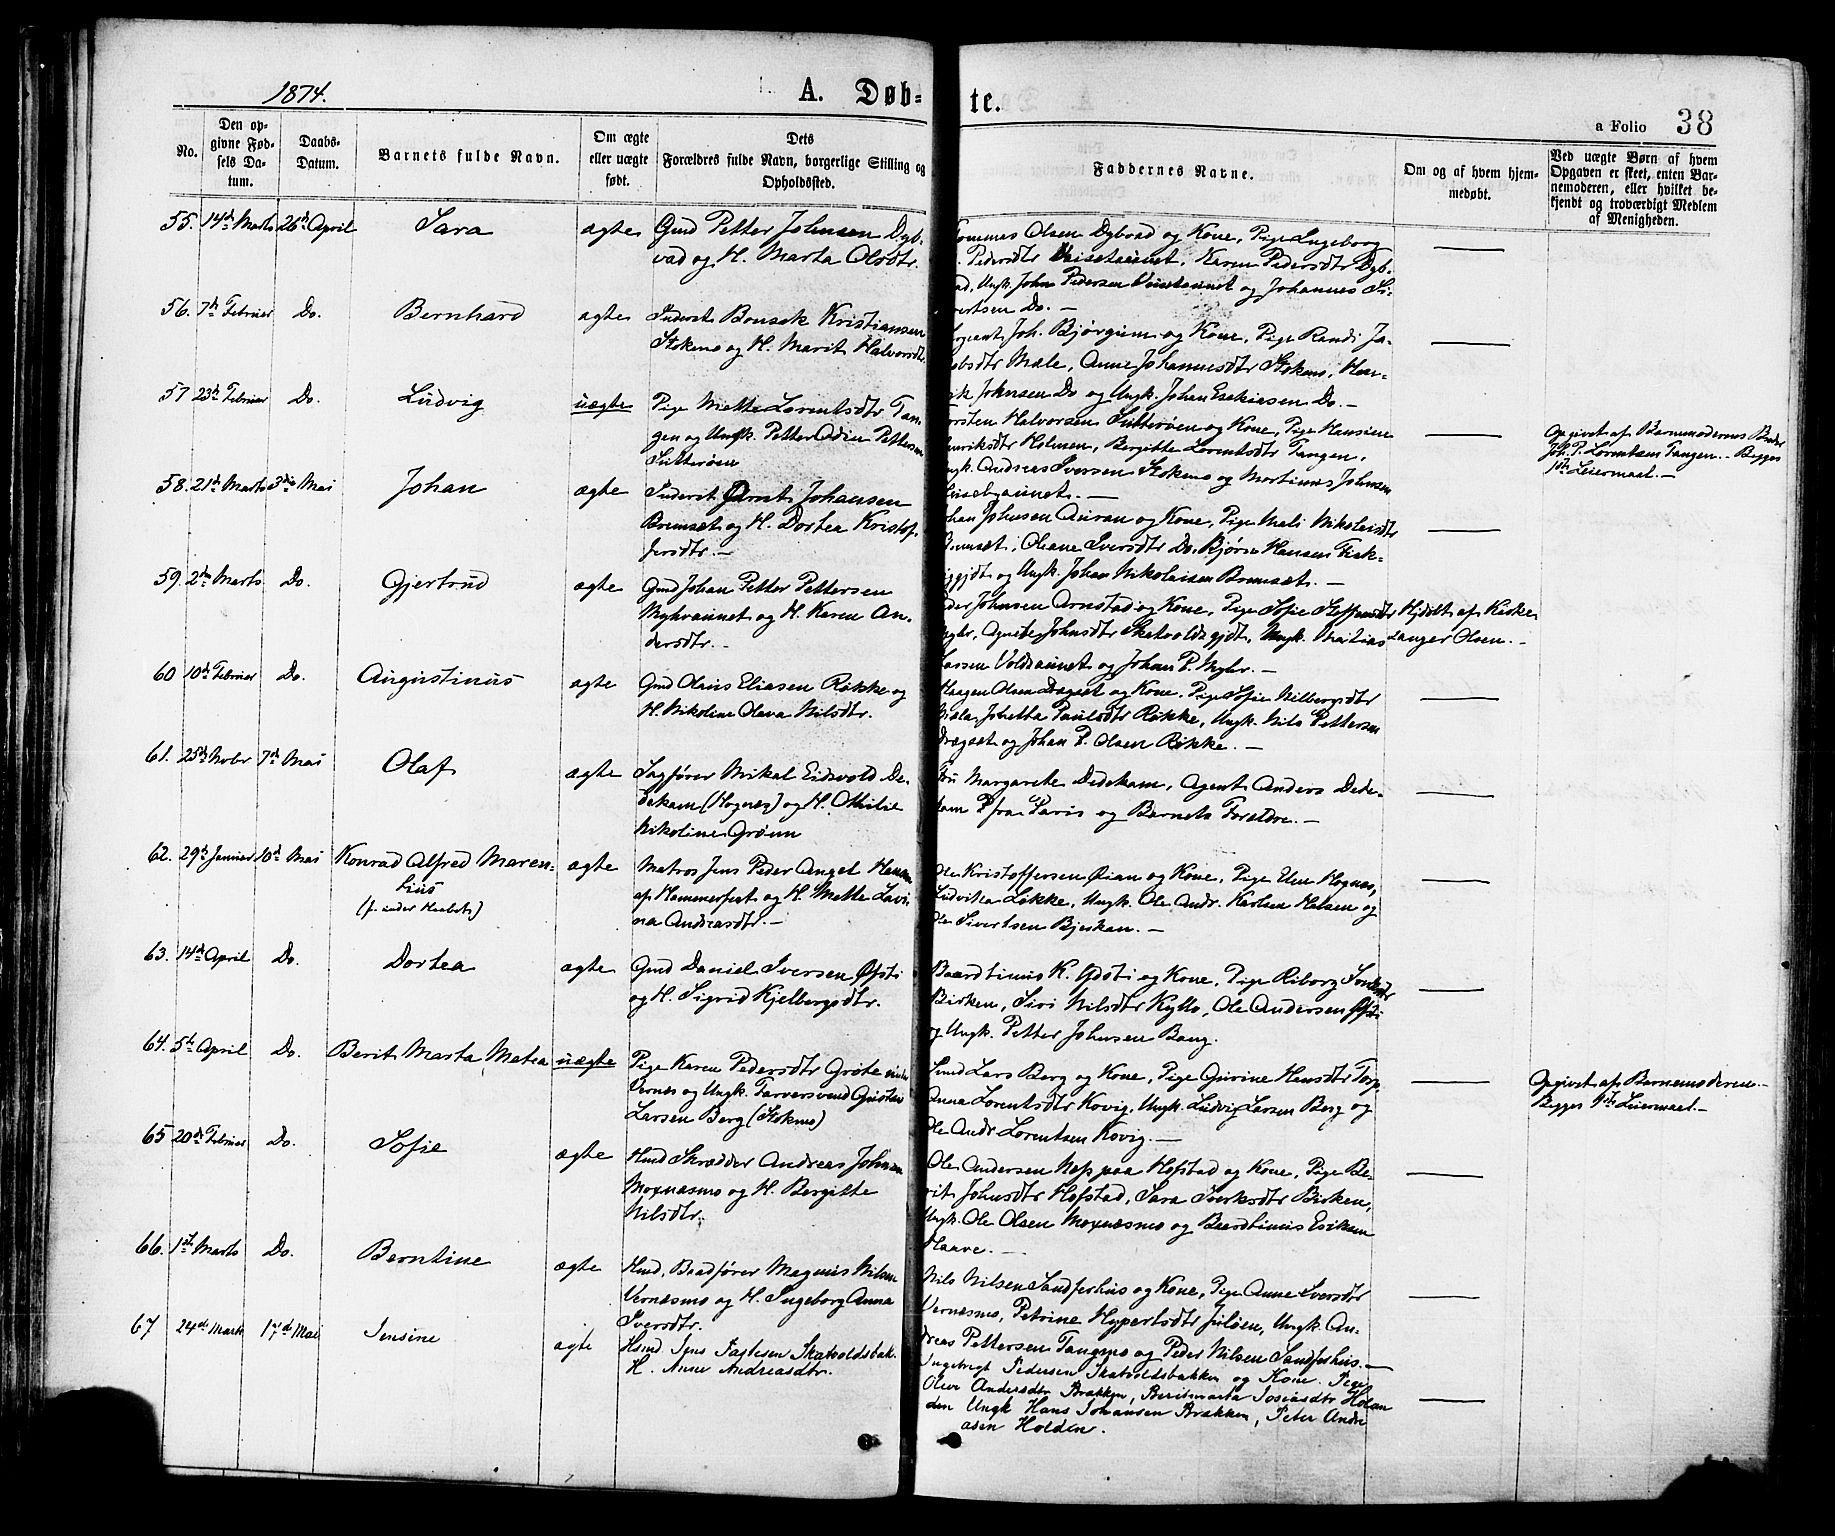 1874.
A. Døb-
te.
a Folio 38
No.
Den op-
givne Fød-
sels Da-
tum.
Daabs-
Datum.
Barnets fulde Navn.
Om ægte
eller uægte
født.
Dets
Forældres fulde Navn, borgerlige Stilling og
Opholdssted.
Faddernes Navne.
Om og af hvem hjem-
medøbt.
Ved uægte Børn af hvem
Opgaven er skeet, enten Bar-
nemoderen, eller hvilket be-
kjendt og troværdigt Medlem
af Menigheden.
55. 14de Marts 26de April Sara ægte Gmd Petter Johnsen Dyb-
vad og H. Marta Olsdtr.
Tommes Olsen Dybvad og Kone, Pige Ingeborg
Pedersdtr, Karen Pedersdtr Dyb-
vad, Ungk. John Pedersen og Johannes Si-
vertsen Do. -
56. 7de Februar Do. Bernhard ægte Inderst Bonsak Kristiansen
Stokmo og H. Marit Halvorsdtr.
Sergeant Joh. Bjørgum og Kone, Pige Randi Ja-
kobsdtr Mæle, Anne Johannesdtr Stokmo, Hen-
rik Johnsen Do og Ungk. Johan Esekiasen Do. -
57 23de Februar Do. Ludvig uægte Pige Mette Lorentsdtr Tan-
gen og Ungk. Petter Odin Pettersen
Sutterøen
Torsten Halvorsen Sutterøen og Kone, Pige Hansine
Henriksdtr Holmen, Bergitte Lorentsdtr Tangen,
Ungk. Andreas Iversen Stokmo og Martinus Johnsen
Opgivet af Barnemoderens Broder
Joh. P. Lorentsen Tangen. - Begges
1ste Leiermaal. -
58. 21de Marts 3die Mai Johan ægte Inderst Arnt Johansen
Bremset og H. Dortea Kristof-
fersdtr. -
Johan Johnsen Auran og Kone, Pige Mali Nikolaisdtr
Bremset, Oleane Iversdtr Do. Bjørn Hansen Fisk-
viggjdt og Ungk. Johan Nikolaisen Bremset. -
59. 2den Marts Do. Gjertrud ægte Gmd Johan Petter Pettersen
Myhraunet og H. Karen An-
dersdtr. -
Peder Johnsen Arnstad og Kone, Pige Sofie Steffensdtr
Myhr, Agnete Johnsdtr Skatvoldsgjdt, Ungk. Mattias
Larsen Voldaunet og Johan P. Myhr. -
Hjdøbt af Kirke-
sanger Olsen. -
60 10de Februar Do. Augustinus ægte Gmd Olaus Eliasen Røkke og
H. Nikoline Olava Nilsdtr.
Haagen Olsen Drægset og Kone, Pige Sofie Nilbergsdtr
Johetta Paulsdtr Røkke, Ungk. Nils Pettersen
Drægset og Johan P. Olsen Røkke. -
61. 25de Novbr 7de Mai Olaf ægte Sagfører Mikal Eidsvold De-
dekam (Hognes) og H. Othilie
Nikoline Grøun
Fru Margarete Dedekam, Agent Anders Dede-
kam P fra Paris og Barnets Forældre. -
62. 29de Januar 10de Mai Konrad Alfred Maren-
tius
ægte Matros Jens Peder Angel Hansen
af Hammerfest og H. Mette Lovi-
na Andreasdtr. -
Ole Kristoffersen Øian og Kone, Pige Elen Hognes,
Ludvika Løkke, Ungk. Ole Andr. Karlsen Halsen og
Ole Sivertsen Bjerkan. -
63. 14de April Do. Dortea ægte Gmd Daniel Iversen Øfsti
og H. Sigrid Kjelbergsdtr.
Baardtinus K. Øfsti og Kone, Pige
Birken, Siri Nilsdtr Kyllo, Ole Andersen Øfsti
og Ungk. Petter Johnsen Bang.
64. 5te April Do. Berit Marta Matea uægte Pige Karen Pedersdtr Grøte
Vernes og Ungk. Farversvend Gustav
Larsen Berg (Stokmo)
Smed Lars Berg og Kone, Pige Gurine Hansdtr Torp,
Anna Lorentsdtr Kovig, Ungk. Ludvig Larsen Berg og
Ole Andr. Lorentsen Kovig. -
Opgivet af Barnemoderen. -
Begges 1ste Leiermaal. -
65 20de Februar Do. Sofie ægte Hmd Skrædder Andreas Johnsen
Moxnæsmo og H. Bergitte
Nilsdtr.
Ole Andersen Nep paa Hofstad og Kone, Pige Be-
rit Johnsdtr Hofstad, Sara Sverksdtr Birken,
Ungk. Ole Olsen Moxnæsmo og Baardtinus Eriksen
Haave. -
66. 1ste Marts Do. Berntine ægte Hmd. Baadfører Magnus Nilsen
Vernæsmo og H. Ingeborg Anna
Iversdtr.
Nils Nilsen Sandferhus og Kone, Pige Anne Iversdtr
Vernæsmo, Petrine Hypertsdtr Juløen, Ungk. An-
dreas Pettersen Tangmo og Peder Nilsen Sandferhus. -
67 24de Marts 17de Mai Jensine ægte Hsmd Jens Fastesen Skatvoldsbak.
H. Anne Andreasdtr.
Ingebrigt Pedersen Skatvoldsbakken og Kone. Pige
Oline Andersdtr Brækken, Beritmarta Josiasdtr Holan
den Ungk Hans Johansen Brækken, Peter Andre
asen Holden.